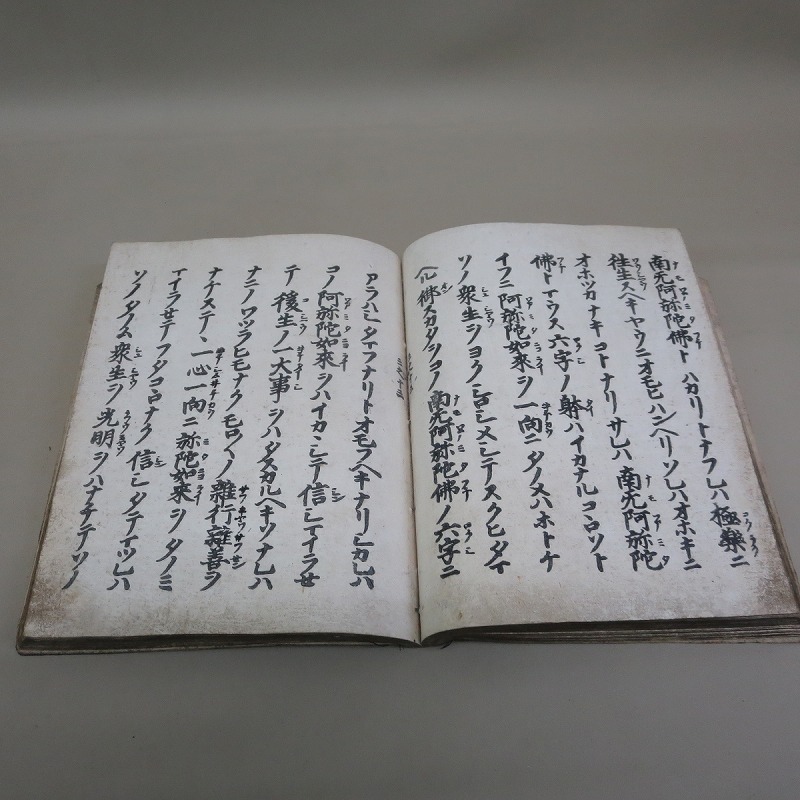 南无阿弥陀佛トハカリトナフレハ極樂ニ
往生スヘキヤウニオモヒハンヘリソレハオホキニ
オホツカナキコトナリサレハ南无阿弥陀
佛トマウス六字ノ躰ハイカナルコヽロソト
イフニ阿弥陀如來ヲ一向ニタノメハホトケ
ソノ衆生ヲヨクシロシメシテスクヒタマ
ヘル御スカタヲコノ南无阿弥陀佛ノ六字ニ
アラハシタマフナリトオモフヘキナリシカレハ
コノ阿弥陀如來ヲハイカヽシテ信シマイラセ
テ後生ノ一大事ヲハタスカルヘキソナレハ
ナニノワツラヒモナクモロ〱ノ雜行雜善ヲ
ナケステヽ一心一向ニ弥陀如來ヲタノミ
マイラセテフタコヽロナク信シタテマツレハ
ソノタノム衆生ヲ光明ヲハナチテソノ